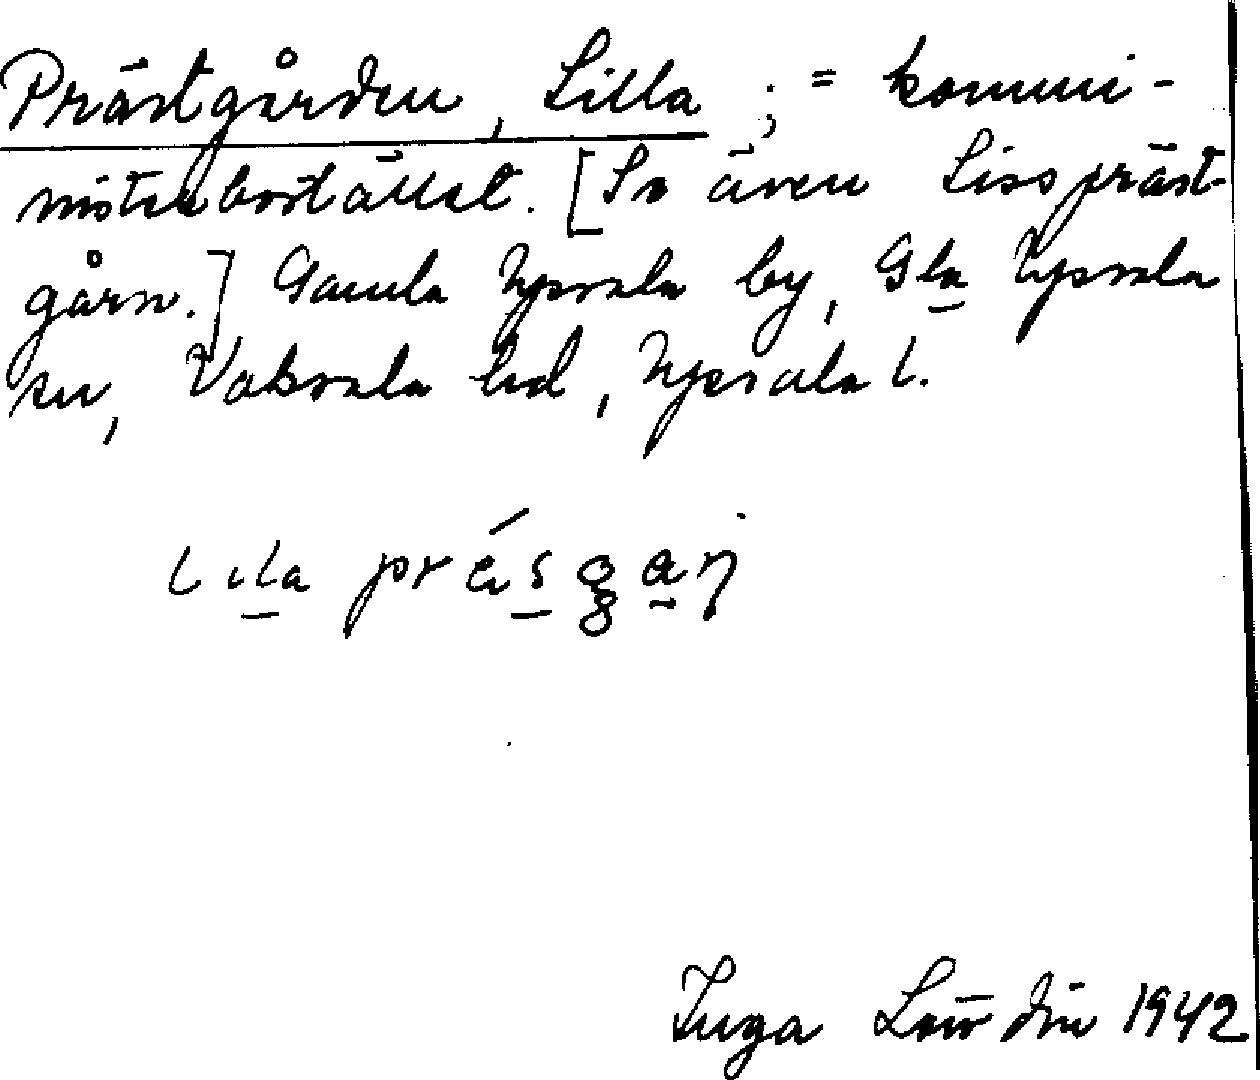 Prästgården, Lilla ; = kommi-
nisterbostället. [Se även Lisspräst-
gårn.] Gamla Upsala by, Gla Upsala
sn, Vaksala hd, Upsala l.
Inga Lowdin 1942